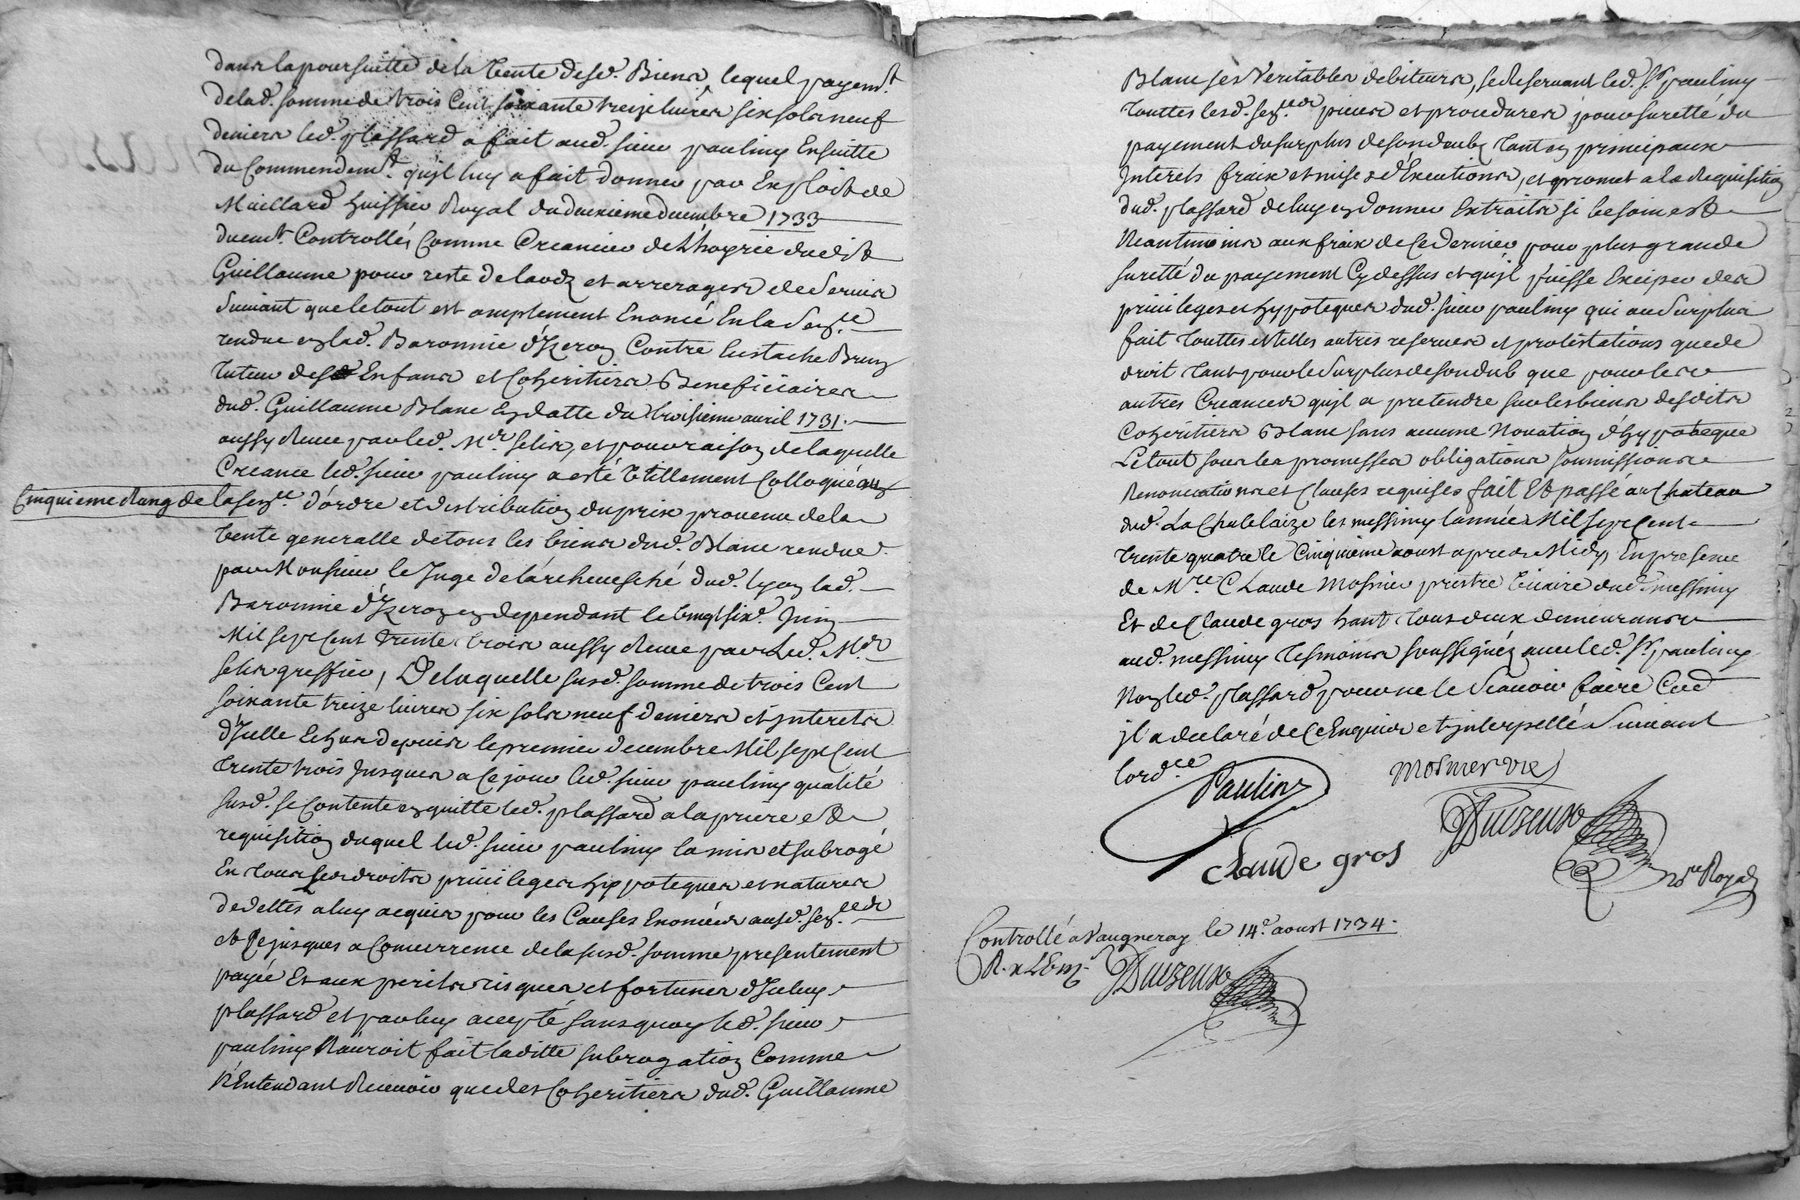 dans la poursuitte de la vente desd. Biens, lequel payemt.
delad. somme de trois Cent soixante treize livres six sols neuf
deniers led. plassard a fait aud. sieur pauliny Ensuitte
du Commendemt. qu'jl luy a fait donner par Exploit de
Maillard huissier Royal du deuxieme decembre 1733
duemt. Controllés Comme Creancier de L'hoyrie dudit
Guillaume pour reste de laodz et arrerages de Servis
Suivant que le tout est amplement Enoncé En la Sence.
rendue en lad. Baronnie d'jzeron Contre Eustache Brun
tuteur de ses Enfans et Coheritiers Beneficiaires
dud. Guillaume Blanc En datte du troisieme avril 1731.
aussy Receue par led. Mr. selix, et pour raison de laquelle
Creance led. sieur pauliny a esté utillement Colloqué au
Cinquieme Rang de la Sence. d'ordre et distribution du prix provenu de la
Vente generalle de tous les biens dud. Blanc rendue
par Monsieur le Juge de l'archevesché dud. lyon lad.
Baronnie d'jzeron en dependant le vingt six. Juin
Mil sept Cent trente trois aussy Receue par Led. Mr.
selix greffier, De laquelle susd. somme de trois Cent
soixante treize livres six sols neuf deniers et jnterets
d'jcelle Echus depuis le premier decembre Mil sept Cent
trente trois jusques a Ce jour led. sieur pauliny qualité
susd. se Contente en quitte led. plassard a la prière et
requisition duquel led. sieur pauliny la mis et subrogé
En tous ses droits privileges hippoteques et natures
de dettes a luy acquis pour les Causes Enoncées ausd. sences.
et Ce jusques a Concurrence de la susd. somme presentement
payée Et aux perils risques et fortunes d'jceluy
plassard et par luy accepté sans quoy led. sieur
pauliny N'auroit fait laditte subrogation Comme
N'Entendant Recevoir que des Coheritiers dud. Guillaume
Blanc ses Veritables debiteurs, se Reservant led. sr. pauliny
touttes lesd. sences. pieces et procedures pour suretté du
payement du surplus de son dub, tant en principaux
Interéts fraix et mises d'Execution, et promet a la Requisition
dud. plassard de luy en donner Extraits si besoin est
Neantmoins aux fraix de Ce dernier pour plus grande
suretté du payement Cy dessus et qu'jl puisse Exciper des
privileges et hypoteques dud. sieur pauliny qui au Surplus
fait touttes et telles autres reserves et protestations que de
droit tant pour le Surplus de son dub que pour les
autres Creances qu'jl a pretendre sur les biens desdits
Coheritiers Blanc sans aucune Novation d'hypoteque
Le tout sous les promesses obligations soumissions
Renonciations et Clauses requises fait Et passé au Chateau
dud. La Chatelaize les messimy l'année Mil sept Cent
trente quatre le Cinquieme aoust apres Midy En presence
de Mre. Claude Mosnier prestre Vicaire dud. messimy
Et de Claude gros hant tous deux demeurans
aud. messimy tesmoins soussignés avec led. sr. pauliny
Non led. plassard pour ne le Scavoir faire Ced
jl a declaré de Ce Enquis et jnterpellé Suivant
lordce.
Pauliny
Mosnier vic
Claude gros
Duizeux
nore. Royal
Controllé a Vaugneray le 14e. aoust 1734.
Duizeux